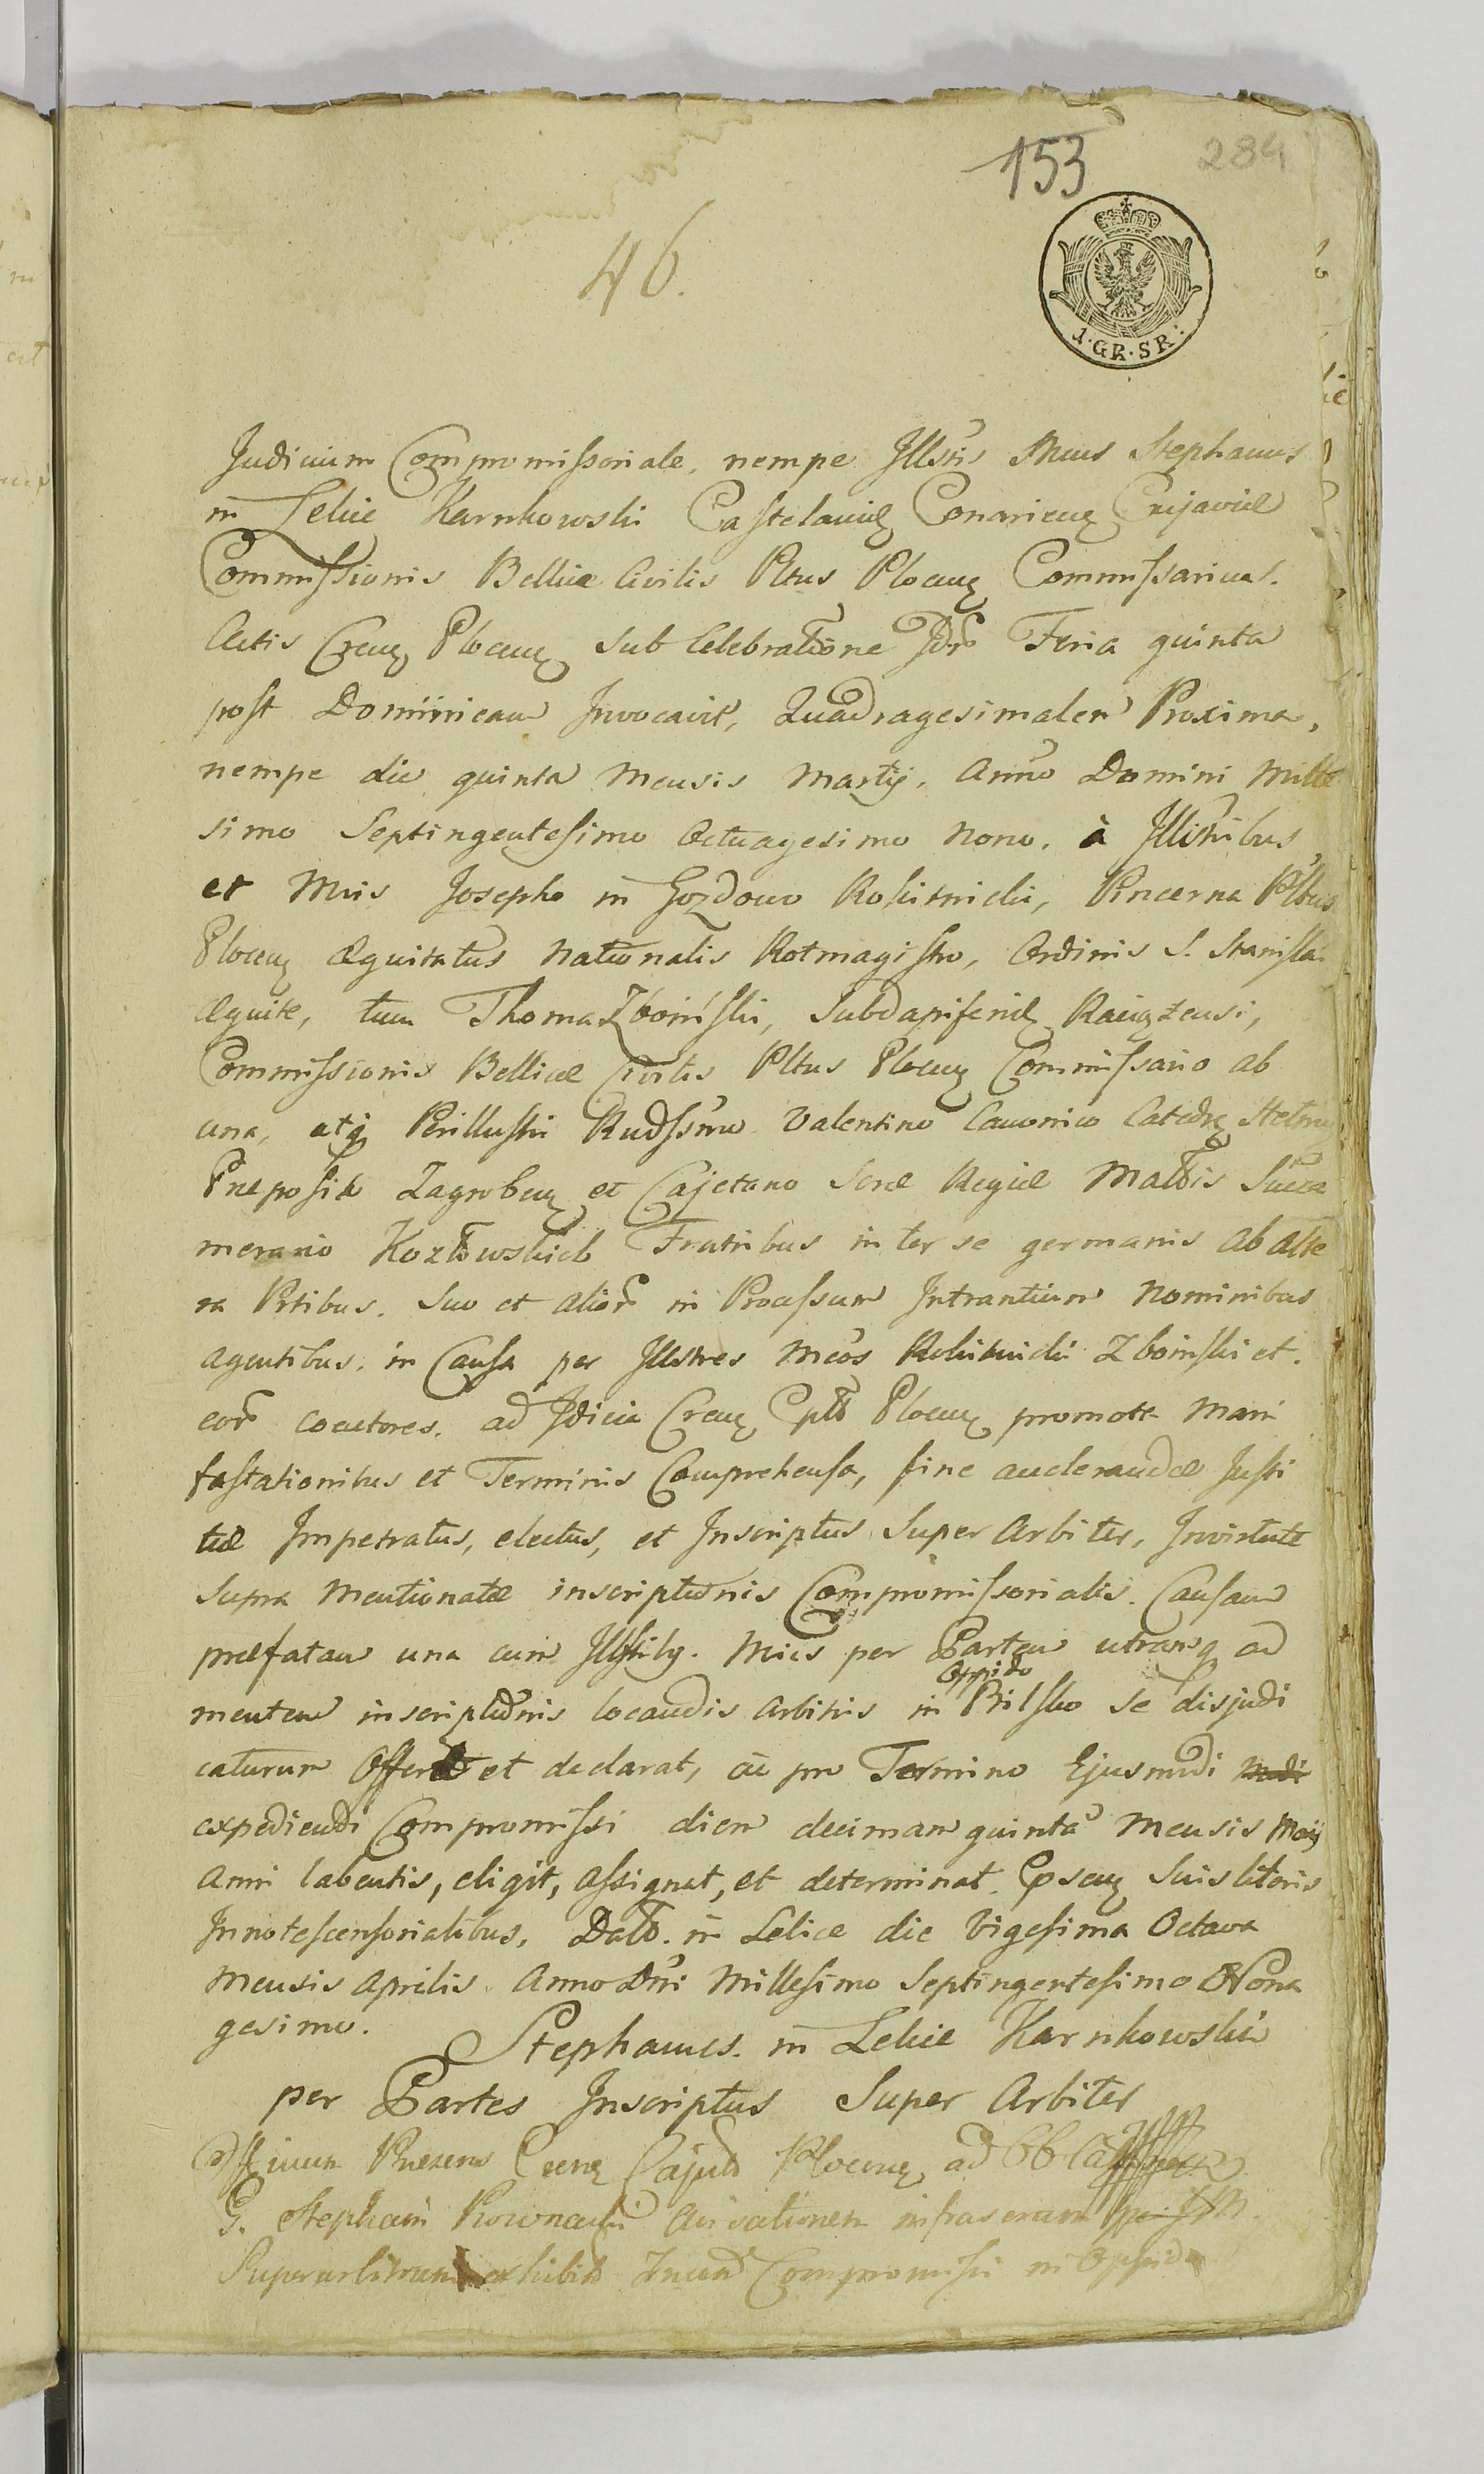 153 284
46.
1·GR·SR·
Judicium Compromissoriale, nempe Illstris Mcus Stephanus
in Lelice Karnkowski Castelanides Conariens Cujaviae
Commissionis Bellicae Civilis Pltus Plocens Commissarius.
Actis Crens Plocens sub Celebratione Jdr Feria quinta
post Dominicam Invocavit, Quadragesimalem Proxima,
nempe die quinta Mensis Martij, Anno Domini Mille
simo Septingentesimo Octuagesimo Nono, à Illstribus
et Mcis Josepho in Gozdowo Rokitnicki, Pincerna Pltus
Plocens Equitatus Nationalis Rotmagistro, Ordinis S. Stanislai
Equite, tum Thoma Zboinski, Subdapiferide Raciążensi,
Commissionis Bellicae Civilis Pltus Plocens Commissario ab
una, atq Perillustri Rndssmo Valentino Canonico Catedr
Preposito Zagroben et Cajetano Srae Regiae Mattis Suca
merario Kozłowskich Fratribus inter se germanis ab alte
ra Prtibus. Suo et alior in Processum Intrantium Nominibus
agentibus, in Causa per Illstres Mcos Rokitnicki Zboinski et.
eor coactores, ad Jdicia Crens Cptt Plocens promota Mani
festationibus et Terminis Comprehensa, fine accelerandae Justi
tiae Impetratus, electus, et Inscriptus Super Arbiter, Invirtute
supra mentionatae inscriptionis Compromissorialis. Causam
praefatam una cum Illstribg. Mcis per Partem utramq ad
mentem inscriptionis locandis Arbitris in Oppido Bilsko se disjudi
caturum Offert et declarat, ac pro Termino Ejusmodi
expediendi Compromissi diem decimam quinta Mensis Maij
Anni labentis, eligit, Assignat, et determinat. Psens suis literis
Innotescensorialibus, Datt. in Lelice die Vigesima Octava
Mensis Aprilis Anno Dni Millesimo Septingentesimo Nona
gesimo.
Stephanus in Lelice Karnkowski
per Partes Inscriptus Super Arbiter
Officium Praesens Crens Plocens ad
G. Stephani
Superarbitrum exhibit Compromissi in Oppido